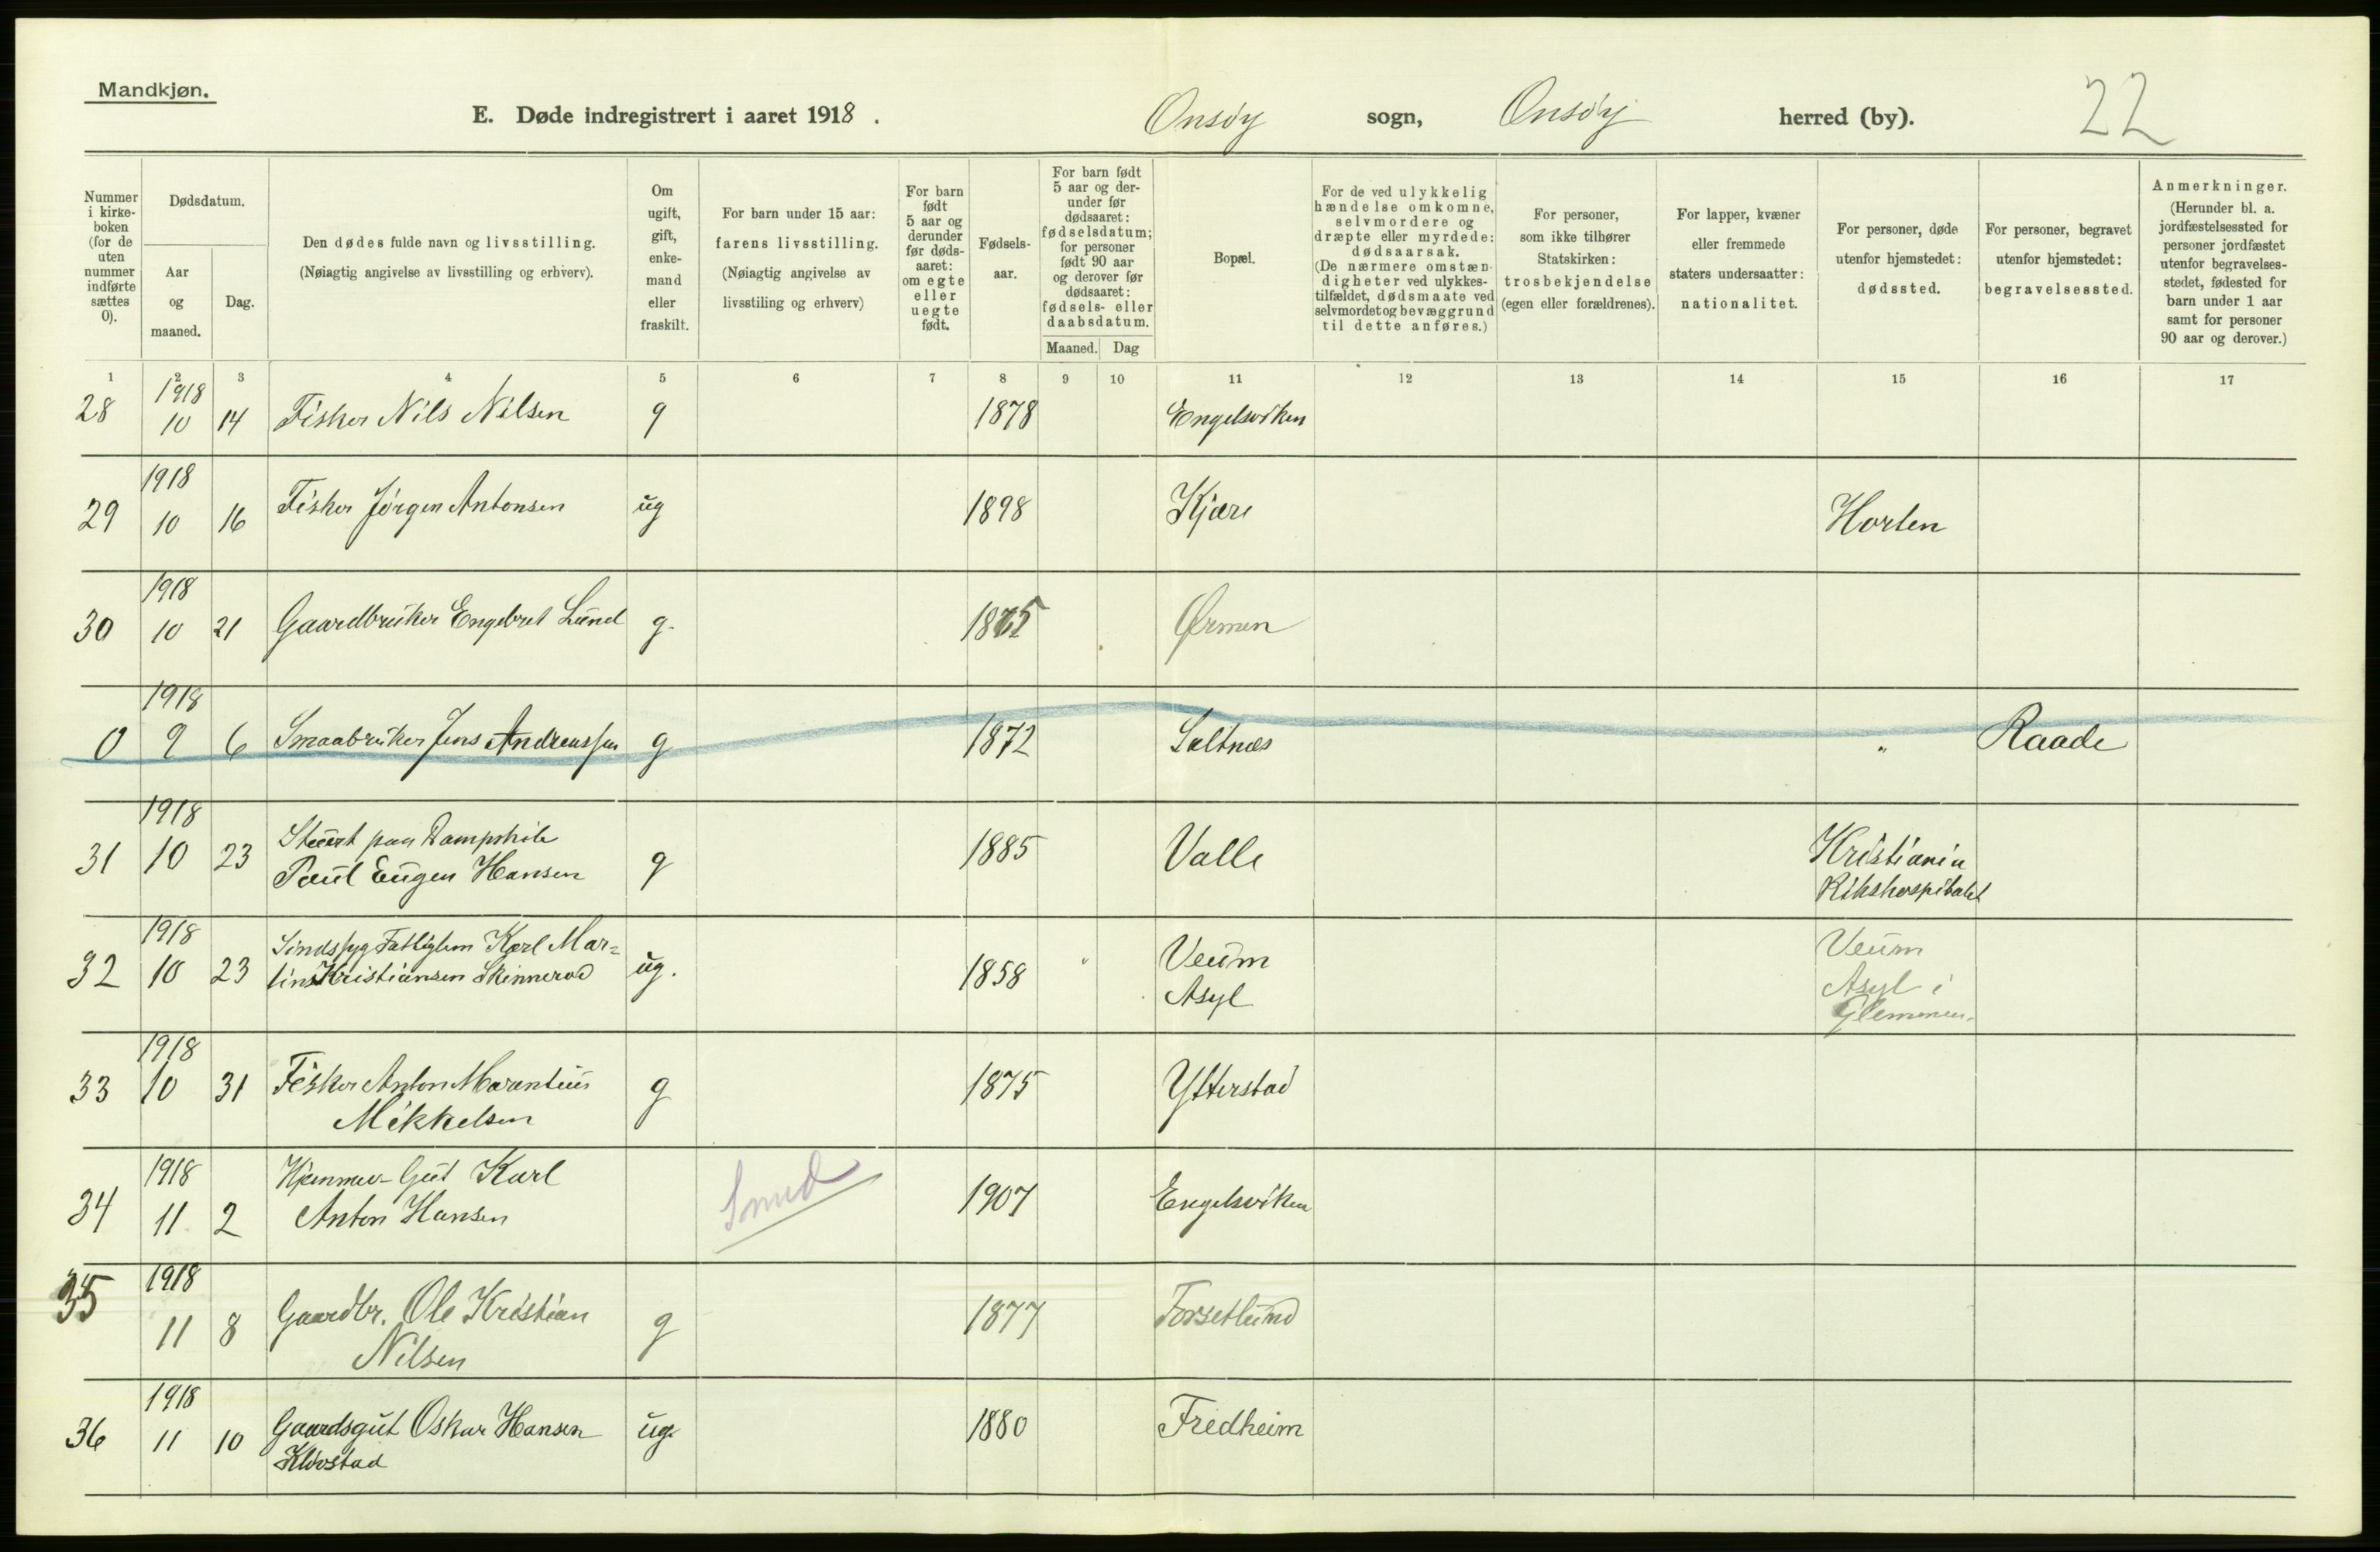 Mandkjøn.
E. Døde indregistrert i aaret 1918. Onsøy sogn, Onsøy herred (by). 22
Nummer i kirke-boken (for de uten nummer indførte sættes 0).
Dødsdatum.
Aar og maaned.
Dag.
Den dødes fulde navn og livsstilling.
(Nøiagtig angivelse av livsstilling og erhverv).
Om ugift, gift, enke-mand eller fraskilt.
For barn under 15 aar: farens livsstilling. (Nøiagtig angivelse av livsstiling og erhverv)
For barn født 5 aar og derunder før døds-aaret: om egte eller uegte født.
Fødsels-aar.
For barn født 5 aar og der-under før dødsaaret: fødselsdatum; for personer født 90 aar og derover før dødsaaret: fødsels- eller daabsdatum.
Maaned. Dag
Bopæl.
For de ved ulykkelig hændelse omkomne, selvmordere og dræpte eller myrdede: dødsaarsak. (De nærmere omstæn-digheter ved ulykkes-tilfældet, dødsmaate ved selvmordet og bevæggrund til dette anføres.)
For personer, som ikke tilhører Statskirken: trosbekjendelse (egen eller forældrenes).
For lapper, kvæner eller fremmede staters undersaatter: nationalitet.
For personer, døde utenfor hjemstedet: dødssted.
For personer, begravet utenfor hjemstedet: begravelsessted.
Anmerkninger. (Herunder bl. a. jordfæstelsessted for personer jordfæstet utenfor begravelses-stedet, fødested for barn under 1 aar samt for personer 90 aar og derover.)
1 2 3 4 5 6 7 8 9 10 11 12 13 14 15 16 17
1918
28 10 14 Fisker Nils Nilsen g 1878 Engelsviken
1918
29 10 16 Fisker Jörgen Antonsen ug 1898 Kjære Horten
1918
30 10 21 Gaardbruker Engebret Lund g. 1875 Ørmen
1918
0 9 6 Smaabruker Jens Andreassen g 1872 Saltnes " Raade
1918
31 10 23 Stuert paa Dampskib
Paul Eugen Hansen g 1885 Valle Kristiania
Rikshospitalet
1918
32 10 23 Sindssyg Fattiglem Karl Mar=
tins Kristiansen Skinnerød ug. 1858 Veum
Asyl
Veum
Asyl i
Glemmen.
1918
33 10 31 Fisker Anton Marentius
Mikkelsen g 1875 Ytterstad
1918
34 11 2 Hjemmev. Gut Karl
Anton Hansen Smed 1907 Engelsviken
1918
35 11 8 Gaardbr. Ole Kristian
Nilsen g 1877 Forsetlund
1918
36 11 10 Gaardsgut Oskar Hansen
Klovstad ug. 1880 Fredheim